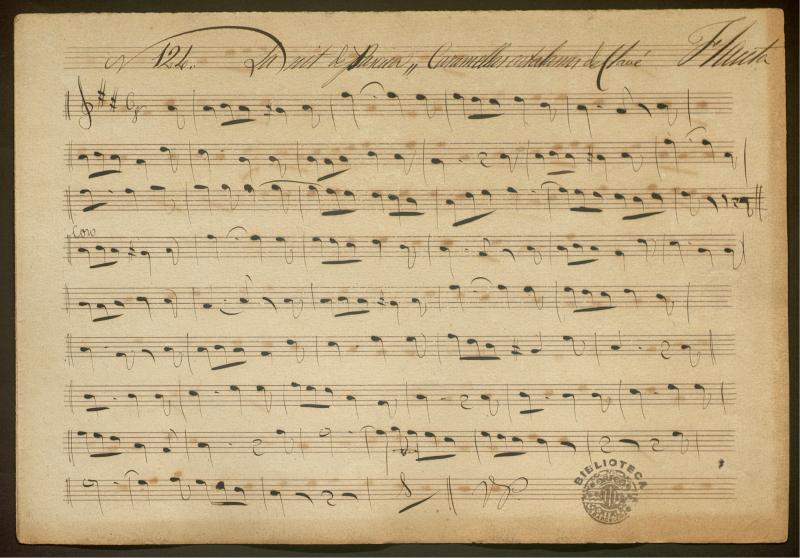 Nº 124. La nit de Pascua „ Caramellas catalanas de Clavé Flauta
Coro
BIBLIOTECA